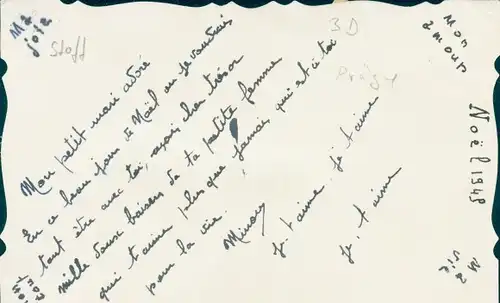 Ma
joie
Mon
amour
Noël 1948
Ma
vie
Mon petit mari adoré
En ce beau jour de Noël ou je voudrais
tant être avec toi, reçois cher trésor
mille doux baisers de ta petite femme
qui t'aime plus que jamais, qui est à toi
pour la vie.
Minou
Je t'aime. je t'aime
Je, t'aime
Mon
Tout
3D
Staff